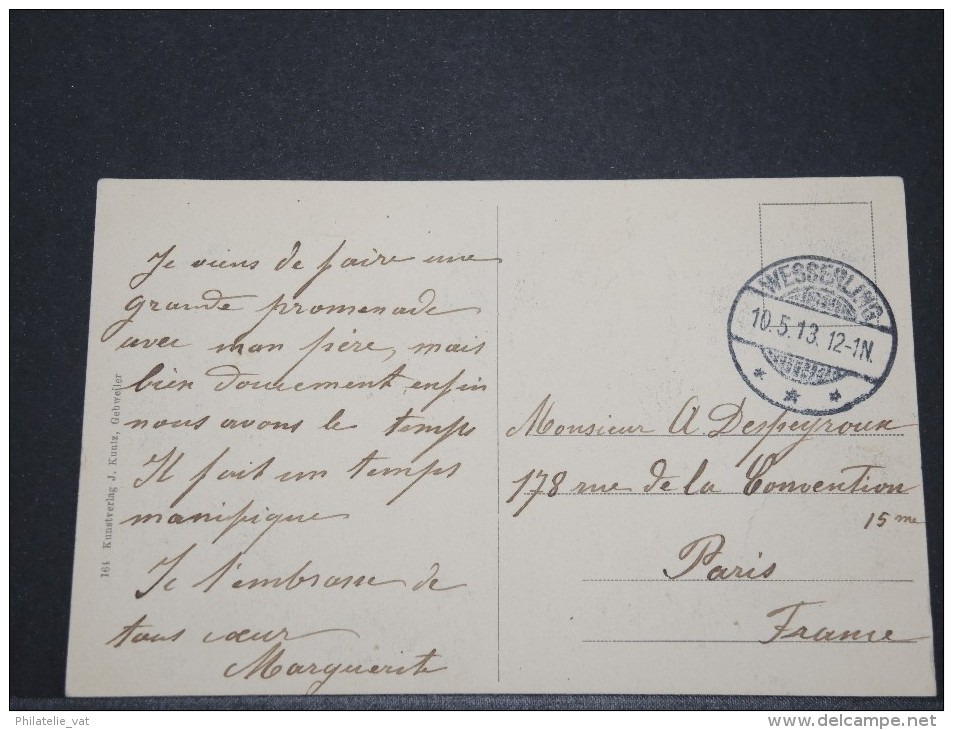 Je viens de faire une
grande promenade
avec mon père, mais
bien doucement enfin
nous avons le temps
Il fait un temps
manifique
Je t'embrasse de
tous cœur
Marguerite
164 Kunstverlag J. Kuntz, Gebweiler
WESSERLING
10.5.13. 12-1N.
Monsieur A. Despeyroux
178 rue de la Convention
15me
Paris
France
Philatelie_vat
www.delcampe.net